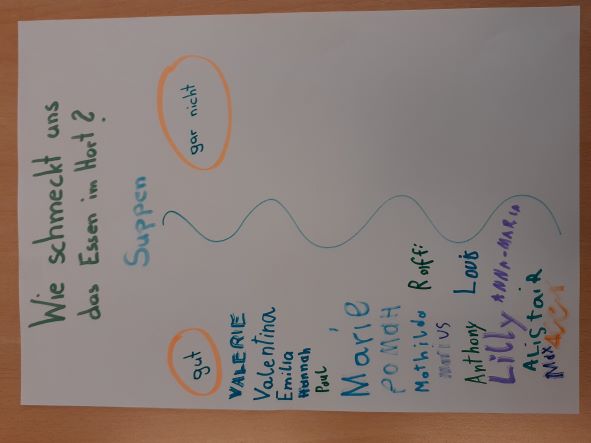 Wie schmeckt uns
das Essen im Hort?
Suppen
gut
gar nicht
VALERIE
Valentina
Emilia
Hannah
Paul
Marie
ROMAN
Mathilda Raffi
Marius
Anthony Louis
Lilly ANNA-MARIA
ALiStaiR
Max